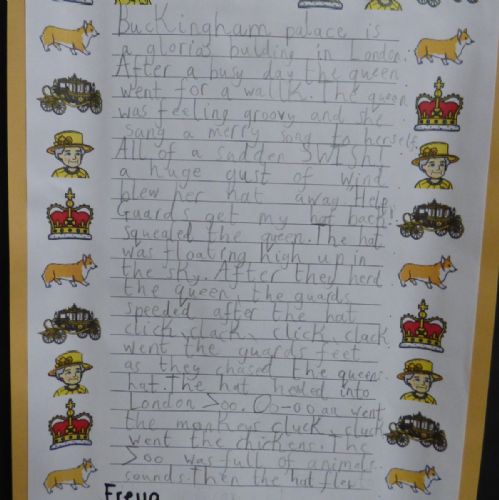 Buckingham palace is
a glorias bulding in London.
After a busy day the queen
went for a wallk. The queen
was feeling groovy and she
sang a merry song to herself.
All of a sudden SWISH!
a huge gust of wind
blew her hat away. Help
Guards get my hat back!
squealed the queen. The hat
was floating high up in
the sky. After they herd
the queen, the guards
speeded after the hat
click, clack, click, clack
went the guards feet
as they chased the queens
hat. The hat heded into
London Zoo. Oo-oo aa went
the monkeys cluck, cluck
went the chickens. The
Zoo was full of animals
sounds. Then the hat flew
Freya